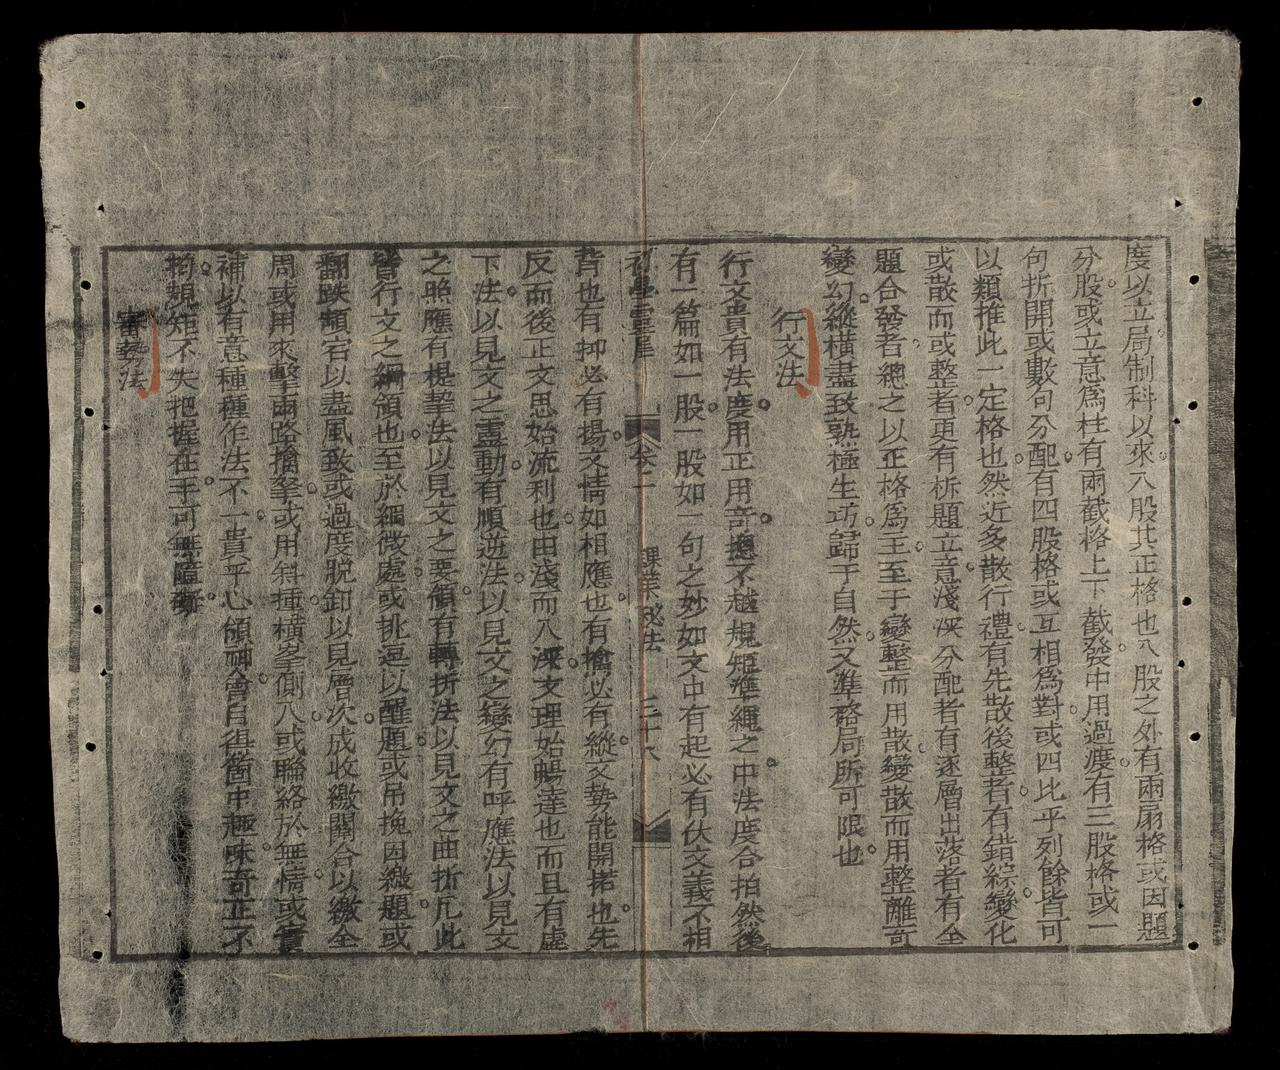 度以立局制科以來八股其正格也八股之外有兩扇格或因題
分股或立意爲柱有兩截格上下截發中用過渡有三股格或一
句折開或數句分配有四股格或互相爲對或四比平列餘皆可
以類推此一定格也然近多散行禮有先散後整者有錯綜變化
或散而或整者更有柝題立意淺深分配者有逐層出落者有全
題合發者總之以正格爲主至于變整而用散變散而用整離奇
變幻縱橫盡致熟極生巧歸于自然又準略局所可限也
行文法
行文貴有法度用正用奇總不越規矩準繩之中法度合拍然後
有一篇如一股一股如一句之妙如文中有起必有伏文義不相
初學靈犀 卷二 課業秘法 三十八
背也有抑必有揚文情如相應也有擒必有縱文勢能開拓也先
反而後正文思始流利也由淺而入深文理始暢達也而且有虛
下法以見文之靈動有順逆法以見文之變幻有呼應法以見文
之照應有提挈法以見文之要領有轉折法以見文之曲折凡此
皆行文之綱領也至於細微處或挑逗以醒題或吊挽因繳題或
翻跌頓宕以盡風致或過度脫卸以見層次或收繳關合以繳全
周或用來擊兩路擒拏或用斜插橫峯側入或聯絡於無情或
補以有意種種作法不一貴乎心領神會自得箇中趣味奇正不
拘規矩不失把握在手可無
審勢法